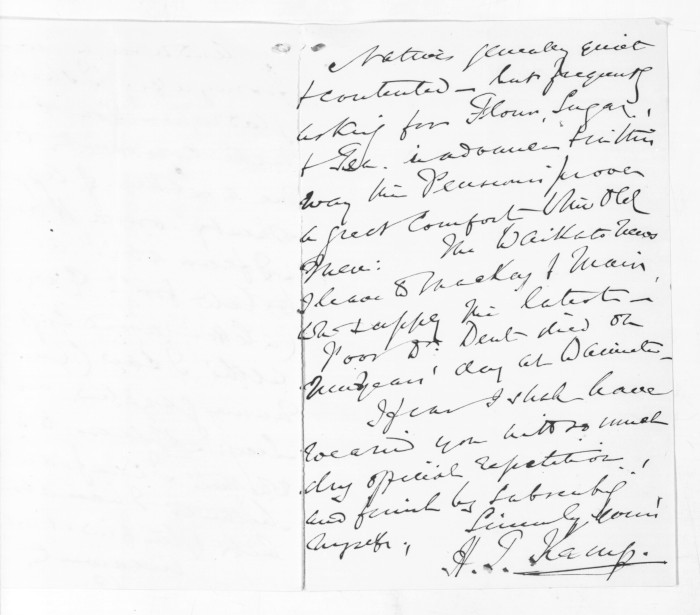 Natives generally quiet
& contented — but frequently
asking for Flour, Sugar,
& Tea. in advance & in this
way the Pensions prove
a great Comfort to the Old
Men: The Waikato News
I leave to Mackay & Mair,
to supply the latest —
Poor Dr. Dent died on
New Years' day at Waimate —
I fear I shall have
wearied you with so much
dry official repetition,
and finish by subscribg
myself, Sincerely Yours
H. T. Kemp.